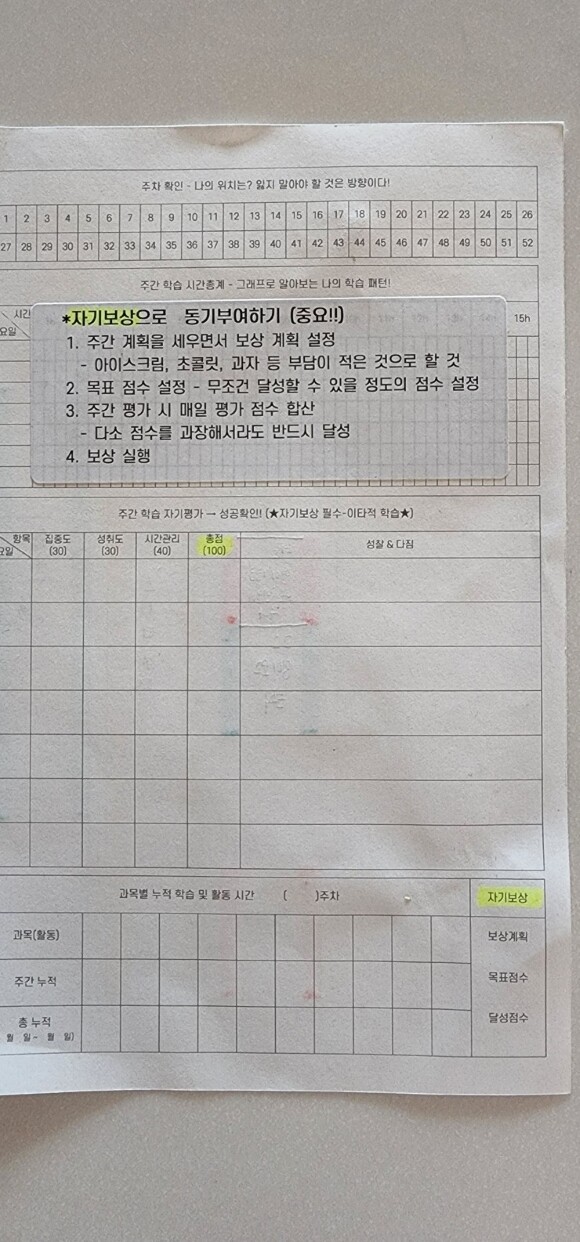 주차 확인 - 나의 위치는? 잊지 말아야 할 것은 방향이다!
1 2 3 4 5 6 7 8 9 10 11 12 13 14 15 16 17 18 19 20 21 22 23 24 25 26
27 28 29 30 31 32 33 34 35 36 37 38 39 40 41 42 43 44 45 46 47 48 49 50 51 52
주간 학습 시간통계 - 그래프로 알아보는 나의 학습 패턴!
시간
요일
15h
*자기보상으로 동기부여하기 (중요!!)
1. 주간 계획을 세우면서 보상 계획 설정
- 아이스크림, 초콜릿, 과자 등 부담이 적은 것으로 할 것
2. 목표 점수 설정 - 무조건 달성할 수 있을 정도의 점수 설정
3. 주간 평가 시 매일 평가 점수 합산
- 다소 점수를 과장해서라도 반드시 달성
4. 보상 실행
주간 학습 자기평가 → 성공확인! (★자기보상 필수-이타적 학습★)
항목 집중도 성취도 시간관리 총점 성찰 & 다짐
요일 (30) (30) (40) (100)
과목별 누적 학습 및 활동 시간 ( )주차 자기보상
과목(활동) 보상계획
주간 누적 목표점수
총 누적 달성점수
월 일 - 월 일)